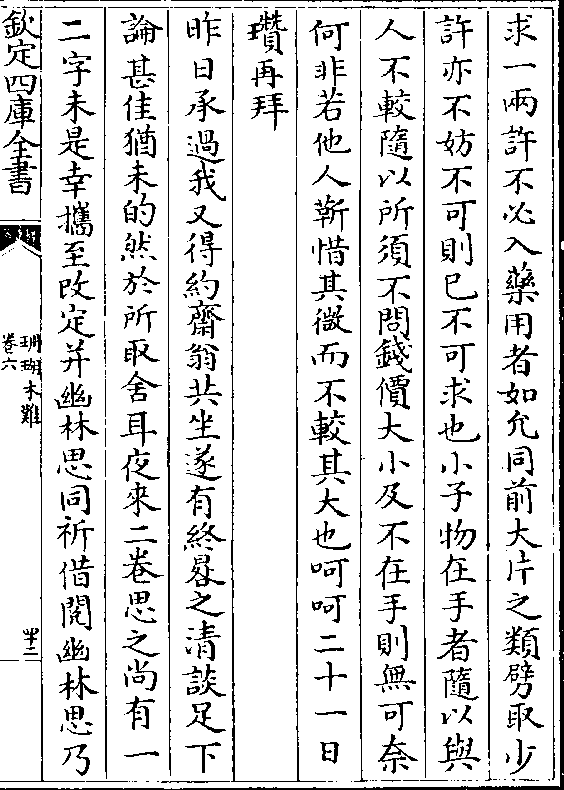 求一兩許不必入藥用者如允同前大片之類劈取少
許亦不妨不可則已不可求也小子物在手者隨以與
人不較隨以所須不問錢價大小及不在手則無可奈
何非若他人靳惜其微而不較其大也呵呵二十一日
瓚再拜
昨日承過我又得約齋翁共坐遂有終晷之清談足下
論甚佳猶未的然於所取舍耳夜來二卷思之尚有一
二字未是幸攜至改定并幽林思同祈借閱幽林思乃
欽定四庫全書
珊瑚木難
卷六